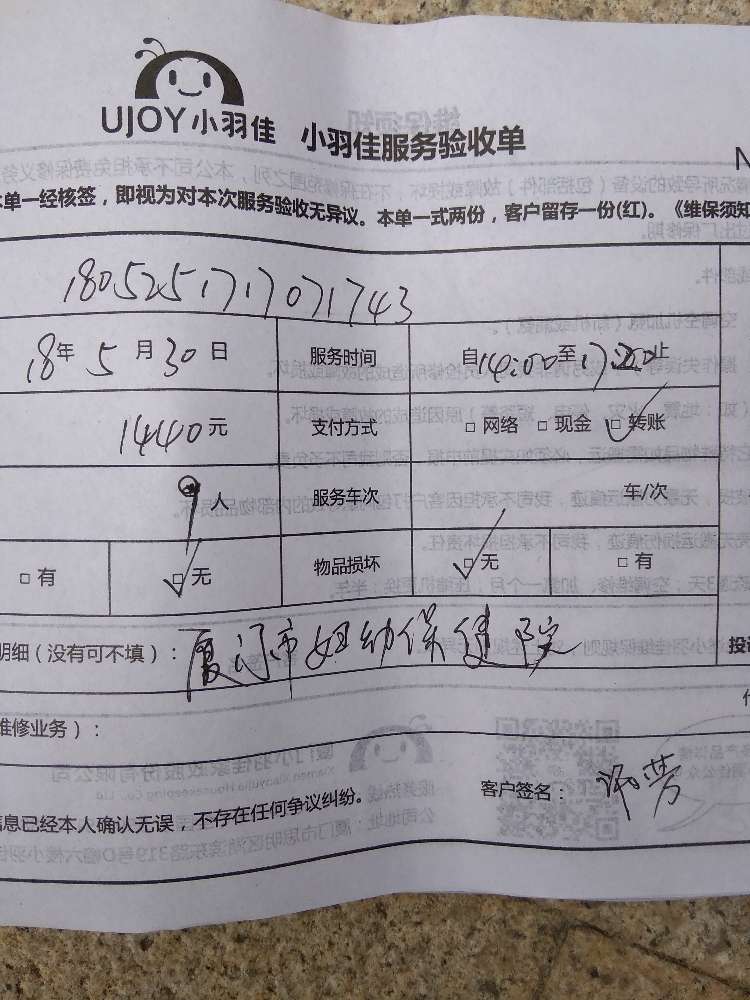 UJOY小羽佳 小羽佳服务验收单
本单一经核签，即视为对本次服务验收无异议。本单一式两份，客户留存一份(红)。《维保须知
180525171071743
18年5月30日 服务时间 自14:00至17:00止
1440元 支付方式 □网络 □现金 □转账
9人 服务车次 车/次
□有 □无 物品损坏 □无 □有
明细（没有可不填）：厦门市妇幼保健院 投
维修业务）：
信息已经本人确认无误，不存在任何争议纠纷。 客户签名：